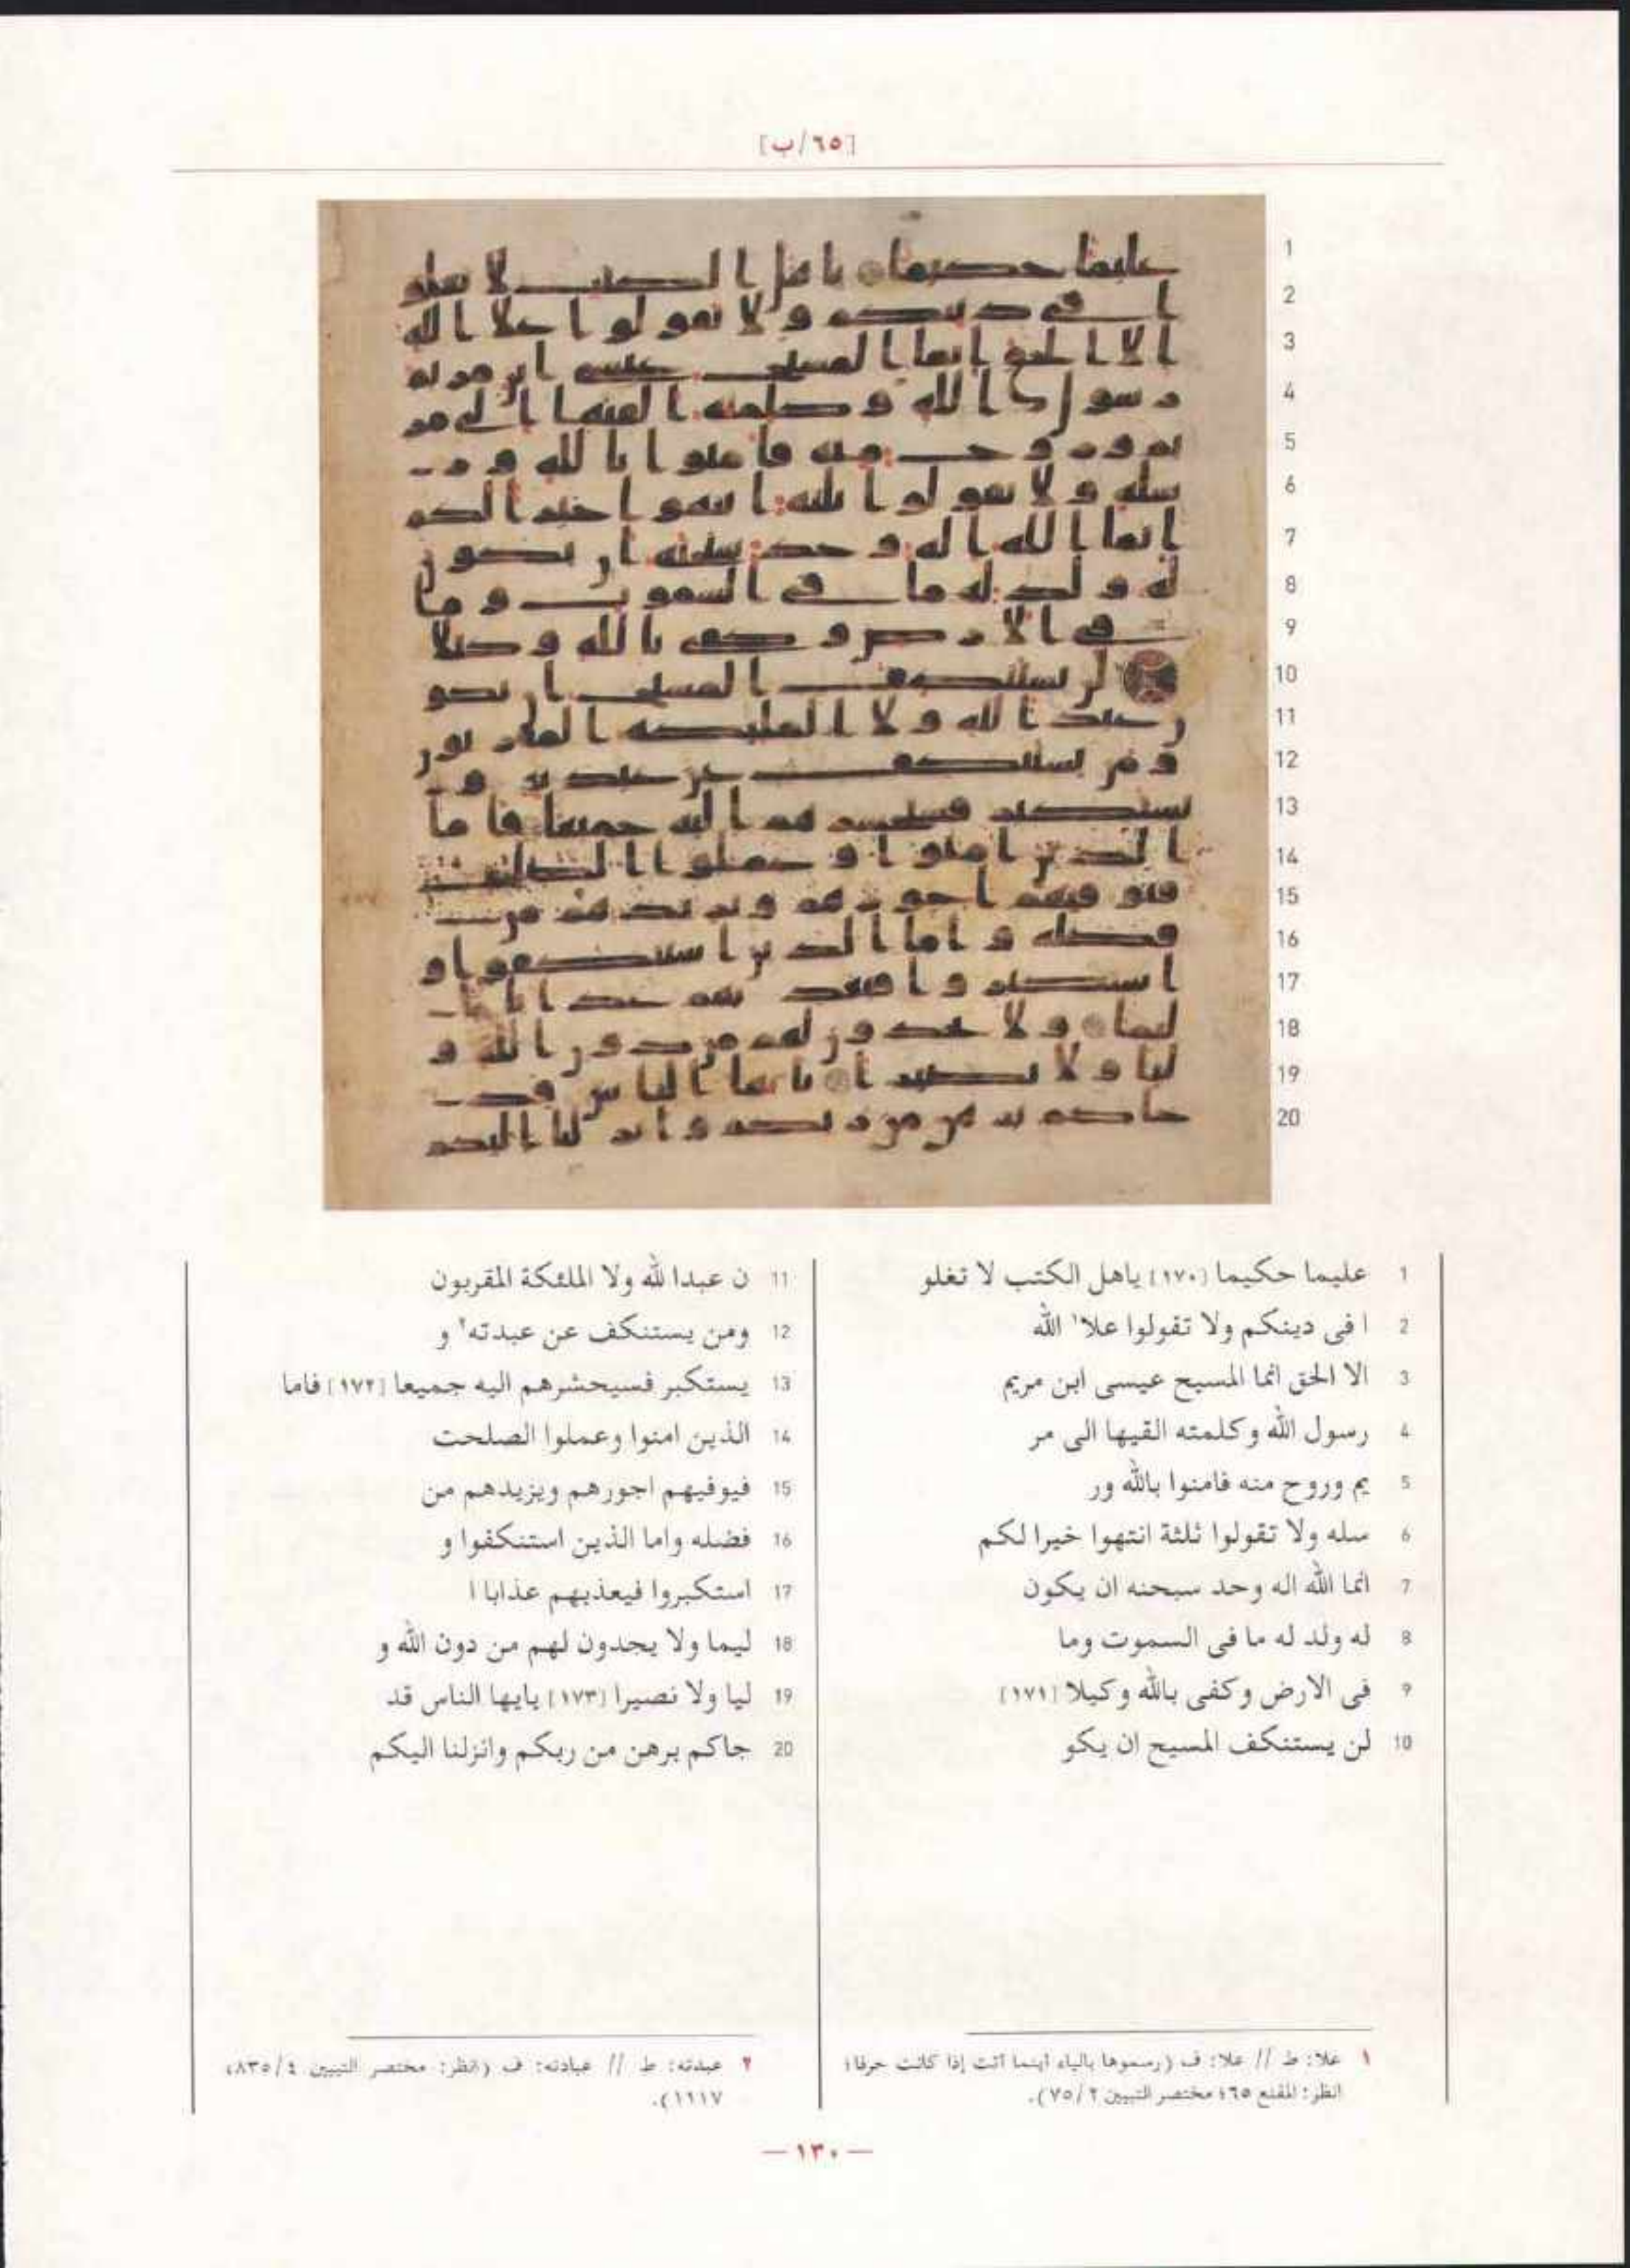 [٦٥/ب]
1
2
3
4
5
6
7
8
9
10
11
12
13
14
15
16
17
18
19
20
1 عليما حكيما [١٧٠] ياهل الكتب لا تغلو
2 ا فى دينكم ولا تقولوا علا١ الله
3 الا الحق انما المسيح عيسى ابن مريم
4 رسول الله وكلمته القيها الى مر
5 يم وروح منه فامنوا بالله ور
6 سله ولا تقولوا ثلثة انتهوا خيرا لكم
7 انما الله اله وحد سبحنه ان يكون
8 له ولد له ما فى السموت وما
9 فى الارض وكفى بالله وكيلا [١٧١]
10 لن يستنكف المسيح ان يكو
11 ن عبدا لله ولا الملئكة المقربون
12 ومن يستنكف عن عبدته٢ و
13 يستكبر فسيحشرهم اليه جميعا [١٧٢] فاما
14 الذين امنوا وعملوا الصلحت
15 فيوفيهم اجورهم ويزيدهم من
16 فضله واما الذين استنكفوا و
17 استكبروا فيعذبهم عذابا ا
18 ليما ولا يجدون لهم من دون الله و
19 ليا ولا نصيرا [١٧٣] يايها الناس قد
20 جاكم برهن من ربكم وانزلنا اليكم
١ علا: ط // علا: ف (رسموها بالياء أينما أتت إذا كانت حرفا؛
انظر: المقنع ٦٥؛ مختصر التبيين ٢/ ٧٥).
٢ عبدته: ط // عبادته: ف (انظر: مختصر التبيين ٤/ ٨٣٥،
١١١٧).
— ١٣٠ —